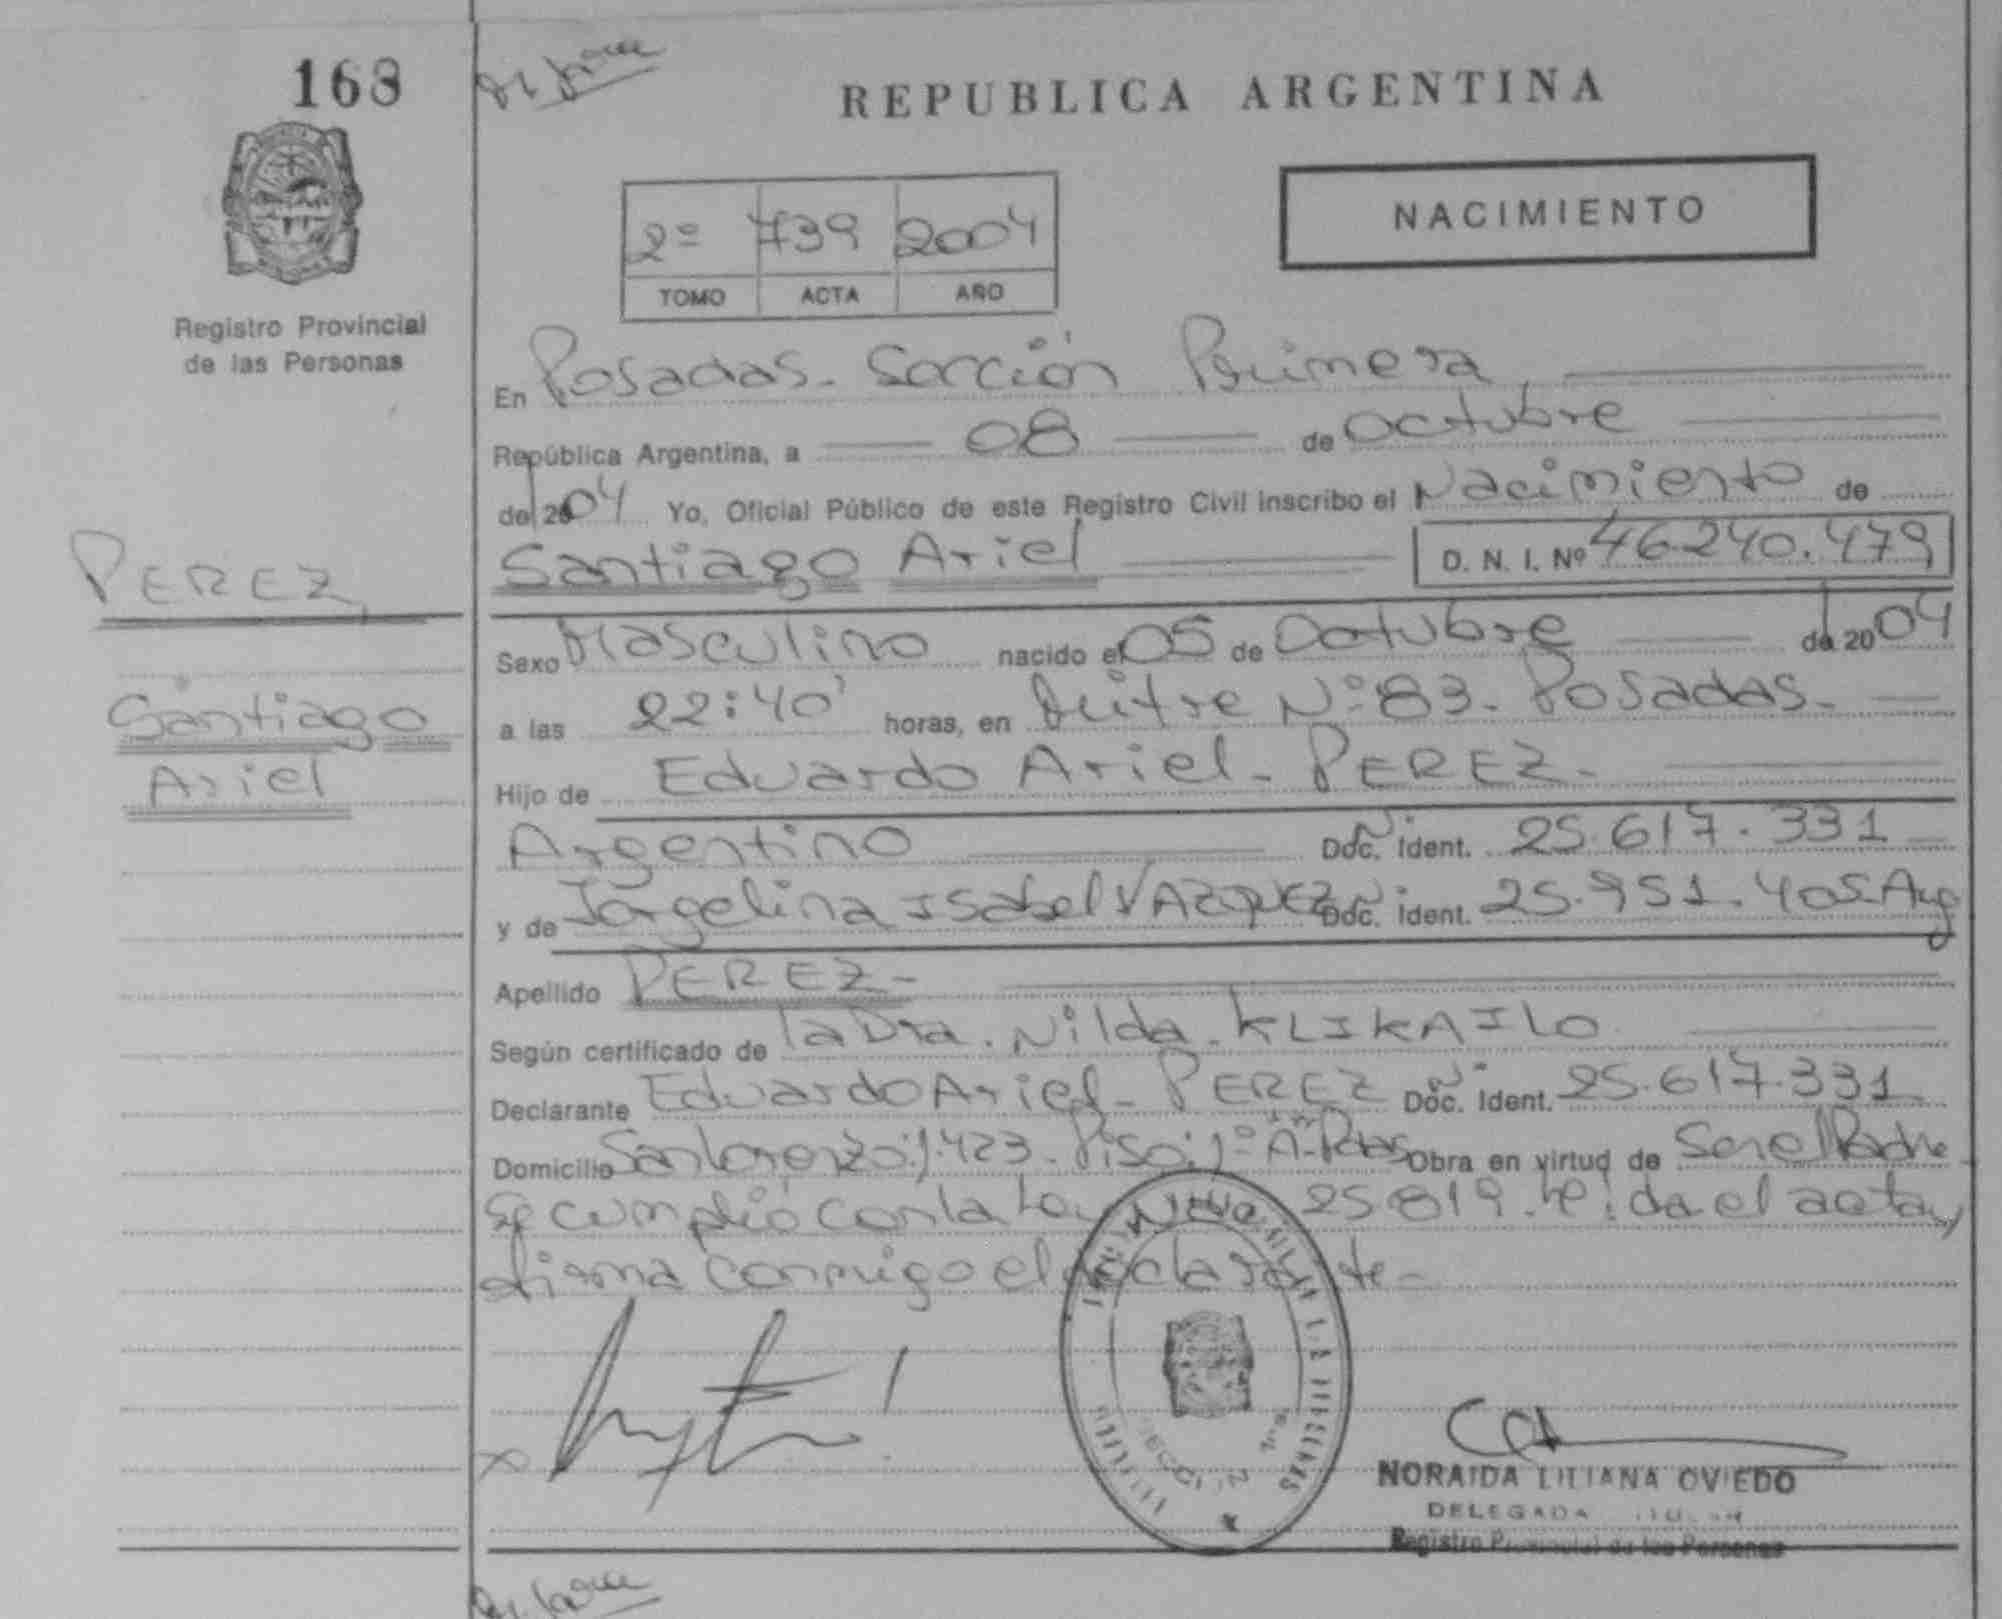 168
REPUBLICA ARGENTINA
NACIMIENTO
2º 739 2004
TOMO ACTA AÑO
Registro Provincial
de las Personas
En Posadas. Sección Primera,
República Argentina, a 08 de Octubre
de 2004 Yo, Oficial Público de este Registro Civil inscribo el Nacimiento de
Santiago Ariel D. N. I. Nº 46.240.479
PEREZ,
Santiago
Ariel
Sexo Masculino nacido el 05 de Octubre de 2004
a las 22:40' horas, en Mitre Nº: 83. Posadas.
Hijo de Eduardo Ariel - PEREZ -
Argentino Doc. Ident. 25.617.331
y de Jorgelina Isabel VAZQUEZ Doc. Ident. 25.951.405 Arg
Apellido PEREZ -
Según certificado de la Dra. Nilda. KLIKAILO
Declarante Eduardo Ariel - PEREZ Doc. Ident. 25.617.331
Domicilio San Lorenzo: 1.423. Piso: 1º A- Pdas Obra en virtud de Ser el Padre
Se cumplió con la Ley 25.819. Leida el acta,
firma conmigo el declarante -
NORAIDA LILIANA OVIEDO
DELEGADA
Registro Provincial de las Personas